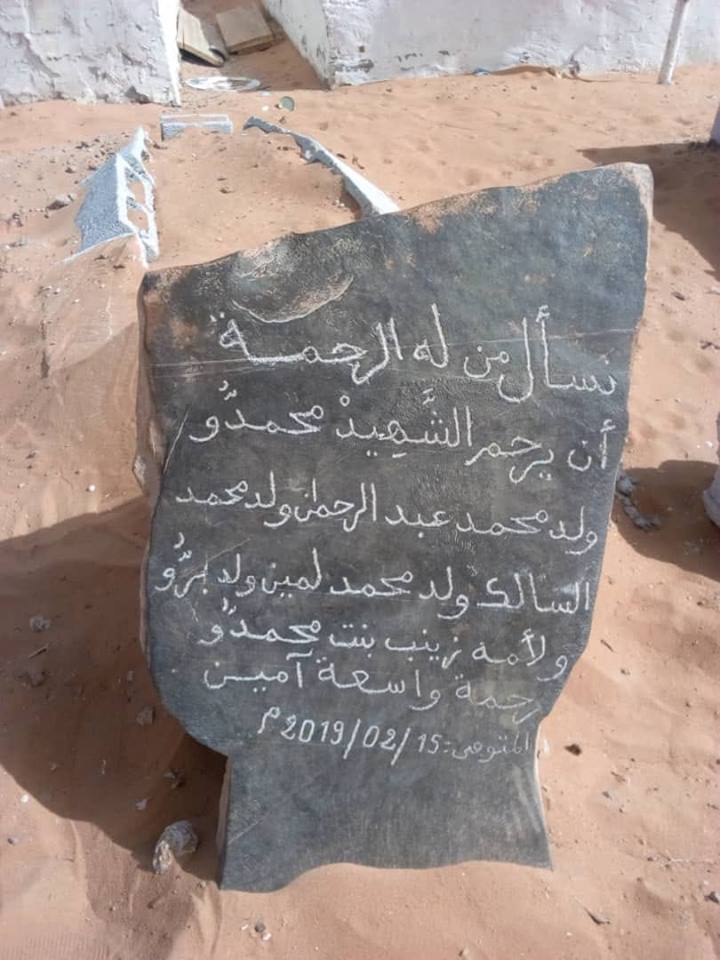 نسأل من له الرحمة
أن يرحم الشَّهِيدْ محمدُّو
ولد محمد عبد الرحمان ولد محمد
السالك ولد محمد لمين ولد ابرُّو
ولأمه زينب بنت محمدُّو
رحمة واسعة آمين
المتوفى: 15/02/2019م